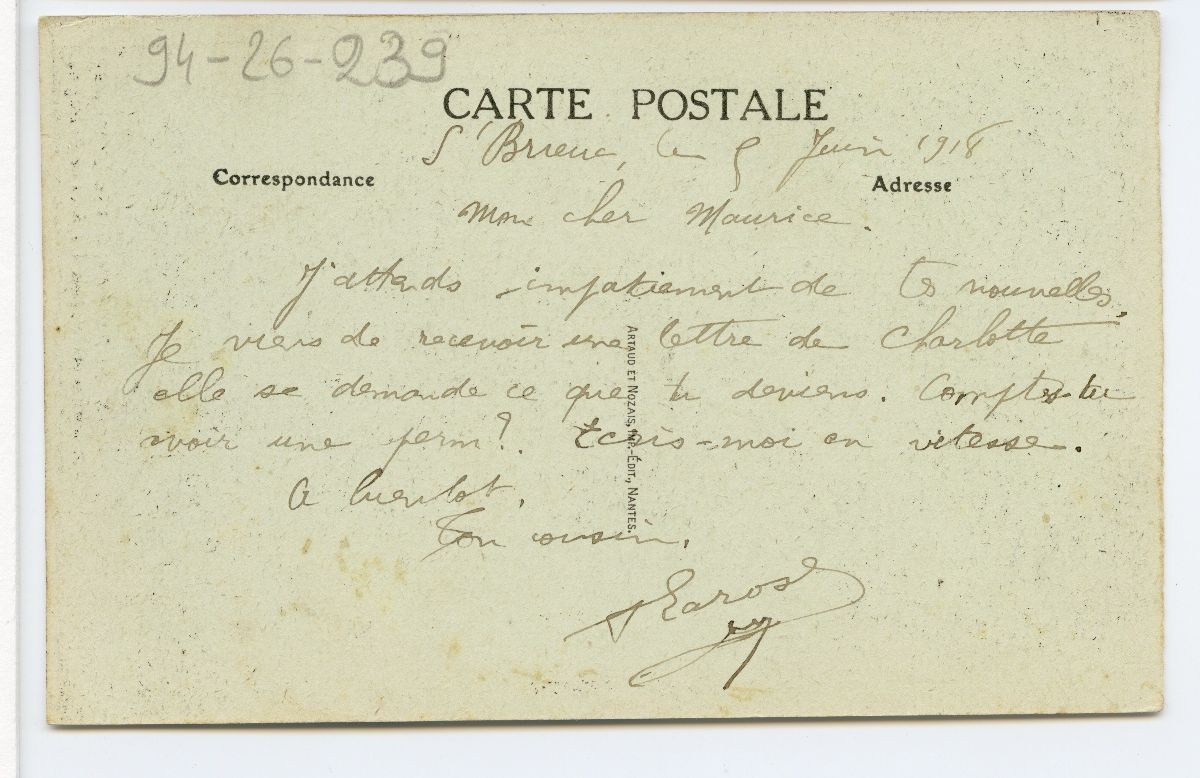 94-26-239
CARTE POSTALE
St Brieuc, le 5 Juin 1918
Correspondance
Adresse
Mon cher Maurice.
J'attends impatiement de tes nouvelles.
Je viens de recevoir une lettre de Charlotte
elle se demande ce que tu deviens. Comptes-tu
avoir une perm ? Ecris-moi en vitesse.
A bientot.
Ton cousin.
ARTAUD ET NOZAIS, IMP.-ÉDIT., NANTES.